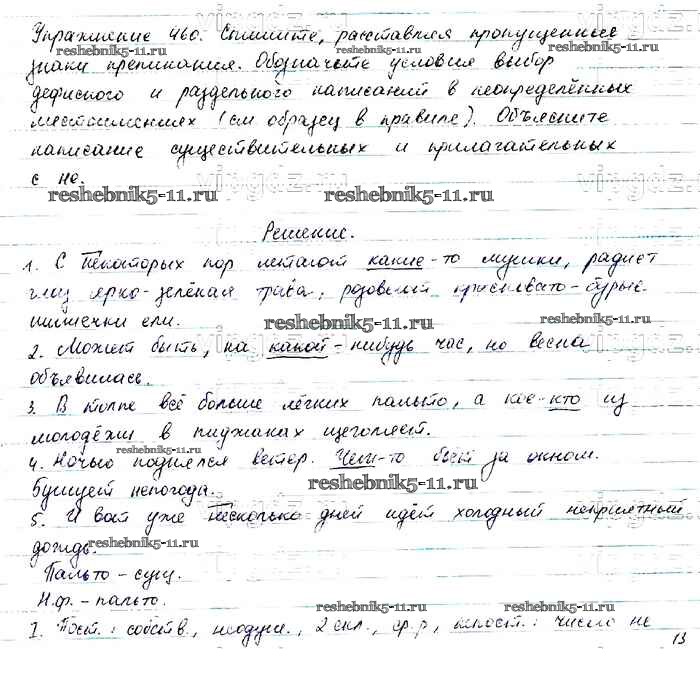 Упражнение 460. Спишите, расставляя пропущенные
знаки препинания. Обозначьте условия выбор
дефисного и раздельного написаний в неопределённых
местоимениях (см образец в правиле). Объясните
написание существительных и прилагательных
с не.
reshebnik5-11.ru
Решение.
1. С некоторых пор летают какие-то мушки, радует
глаз ярко-зелёная трава, розовыми красновато-бурые
шишечки ели.
reshebnik5-11.ru
2. Может быть, на какой-нибудь час, но весна
объявилась.
3. В толпе всё больше лёгких пальто, а кое-кто из
молодёжи в пиджаках щеголяет.
reshebnik5-11.ru
4. Ночью поднялся ветер. Чем-то бьёт за окном.
Бушует непогода.
reshebnik5-11.ru
5. И вот уже несколько дней идёт холодный неприятный
дождь.
reshebnik5-11.ru
Пальто - сущ.
Н.ф. - пальто.
reshebnik5-11.ru
I. Пост.: собств., неодуш., 2 скл., ср.р., непост.: число не
13